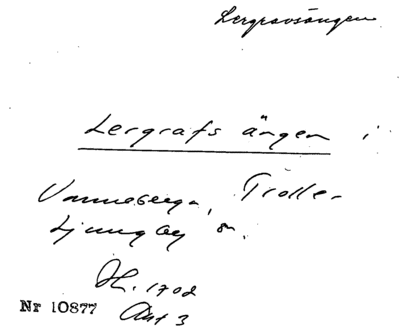 Lergravsängen
Lergrafs ängen i
Vanneberga, Trolle-
Ljungby sn.
Nr 10877
Akt 3